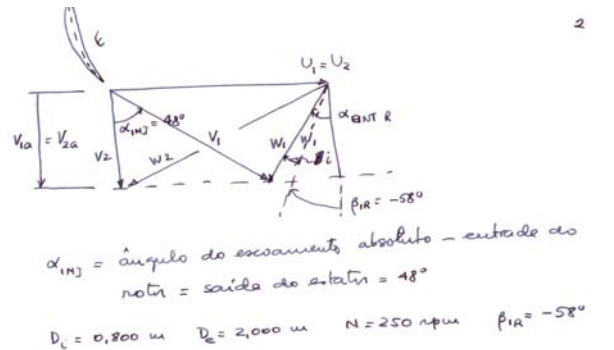 2
U₁ = U₂
α ENT R
α INJ = 48°
V₁
V1a = V2a
V2
W2
W₁
W₁
i
β1R = -58°
α INJ = ângulo do escoamento absoluto - entrada do
rotor = saída do estator = 48°
Di = 0,800 m De = 2,000 m N = 250 rpm β1R = -58°